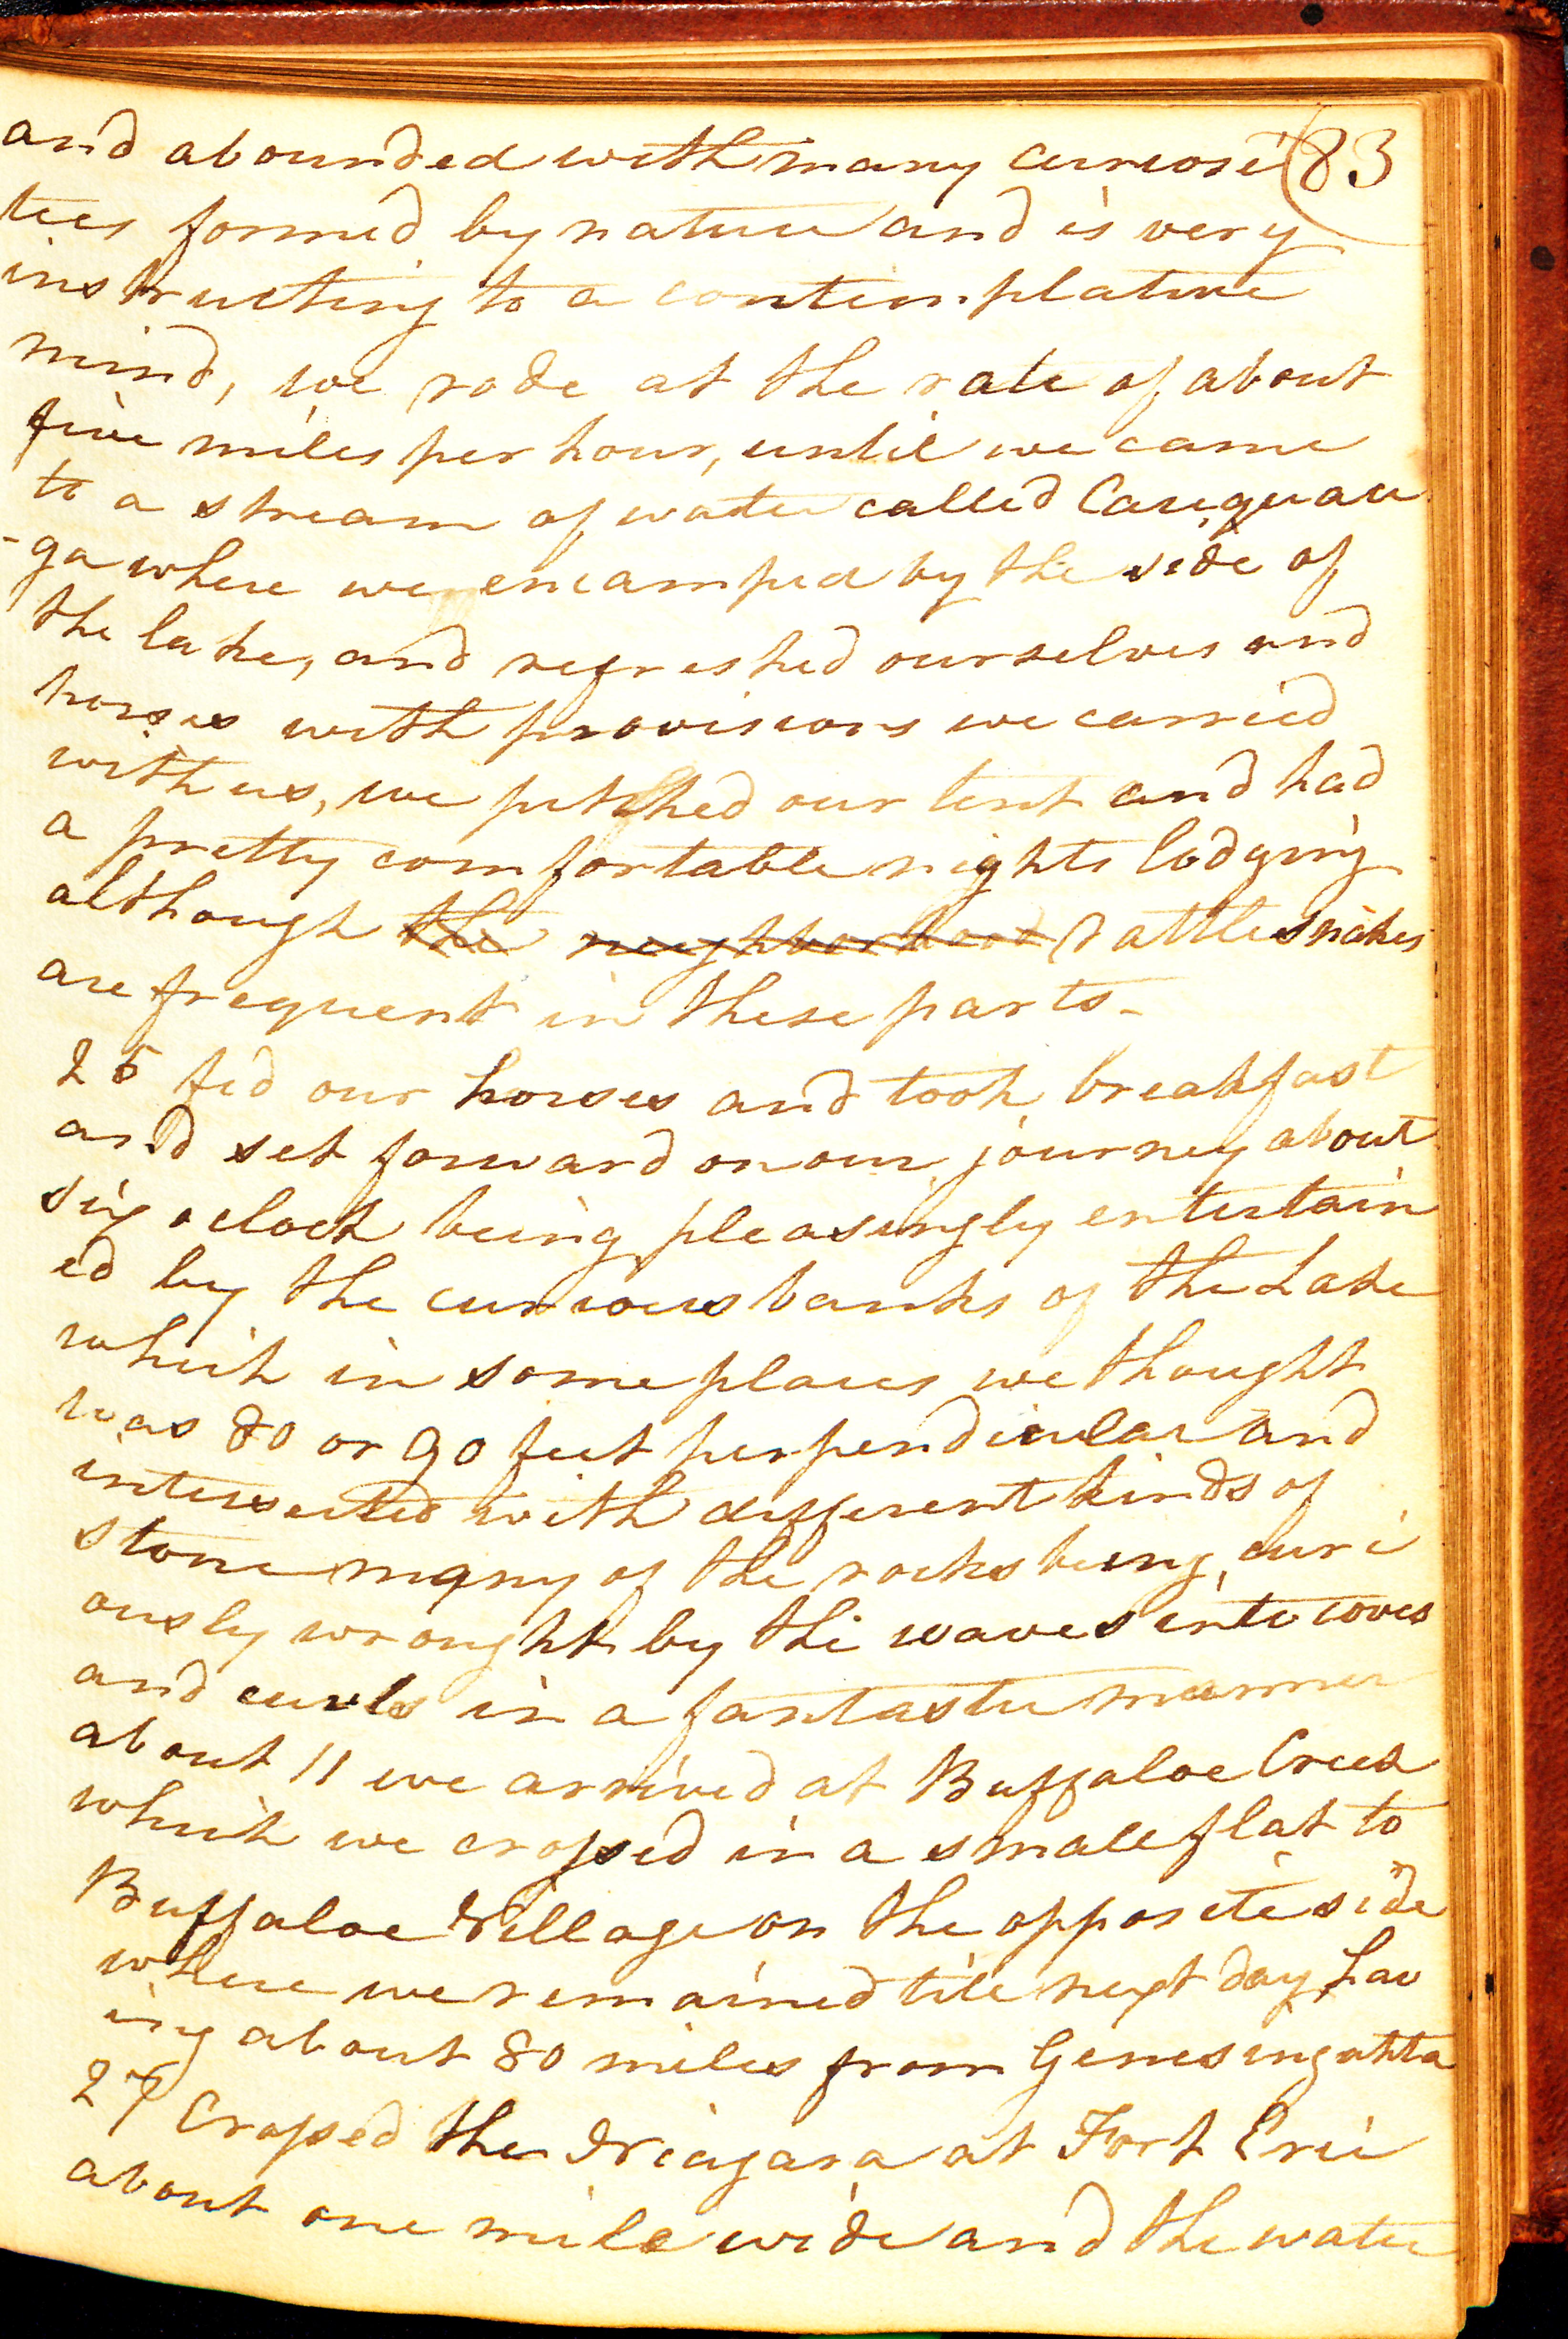 and abounded with many curiosi 83
ties formed by nature and is very
instructing to a contemplative
mind, we rode at the rate of about
five miles per hour, until we came
to a stream of water called
-ga where we encamped by the side of
the lake, and refreshed ourselves and
horses with provisions we carried
with us, we pitched our tent and had
a pretty comfortable nights lodging
although the neighborhood rattlesnakes
are frequent in these parts.
26 fed our horses and took breakfast
and set forward on our journey about
six oclock being pleasingly entertain
ed by the curious banks of the Lake
which in some places we thought
was 80 or 90 feet perpendicular and
intersected with different kinds of
stone many of the rocks being curi
ously wrought by the waves into coves
and curls in a fantastic manner
about 11 we arrived at Buffaloe Creek
which we crossed in a small flat to
Buffaloe Village on the opposite side
where we remained till next day hav
ing about 80 miles from Genesinguhta
27 Crossed the Niagara at Fort Erie
about one mile wide and the water